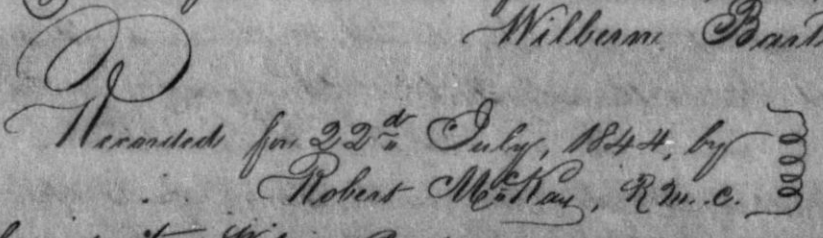 Wilbern
Recorded for 22d July, 1844, by
Robert McKay, R. M. C.